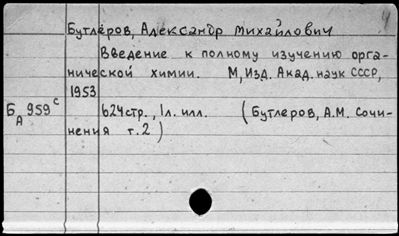 4
Бутлеров, Александр Михайлович
Введение к полному изучению орга-
нической химии. М, Изд. Акад. наук СССР,
1953
Б 959 с
А
624 стр., 1 л. илл. (Бутлеров, А.М. Сочи-
нения т. 2)